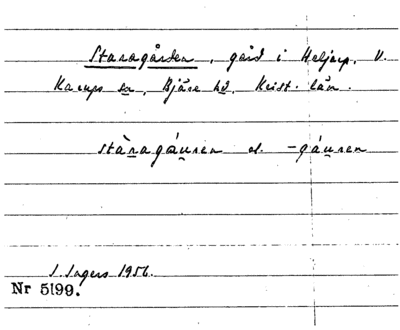 Staragården, gård i Heljarp, V.
Karups sn, Bjäre hd, Krist. län.
stàṟagáu̱ṟen el. -gáu̱ṟen
1956.
Nr 5199.